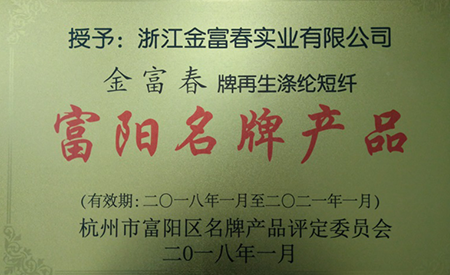 授予：浙江金富春实业有限公司
金富春 牌再生涤纶短纤
富阳名牌产品
(有效期：二〇一八年一月至二〇二一年一月)
杭州市富阳区名牌产品评定委员会
二〇一八年一月